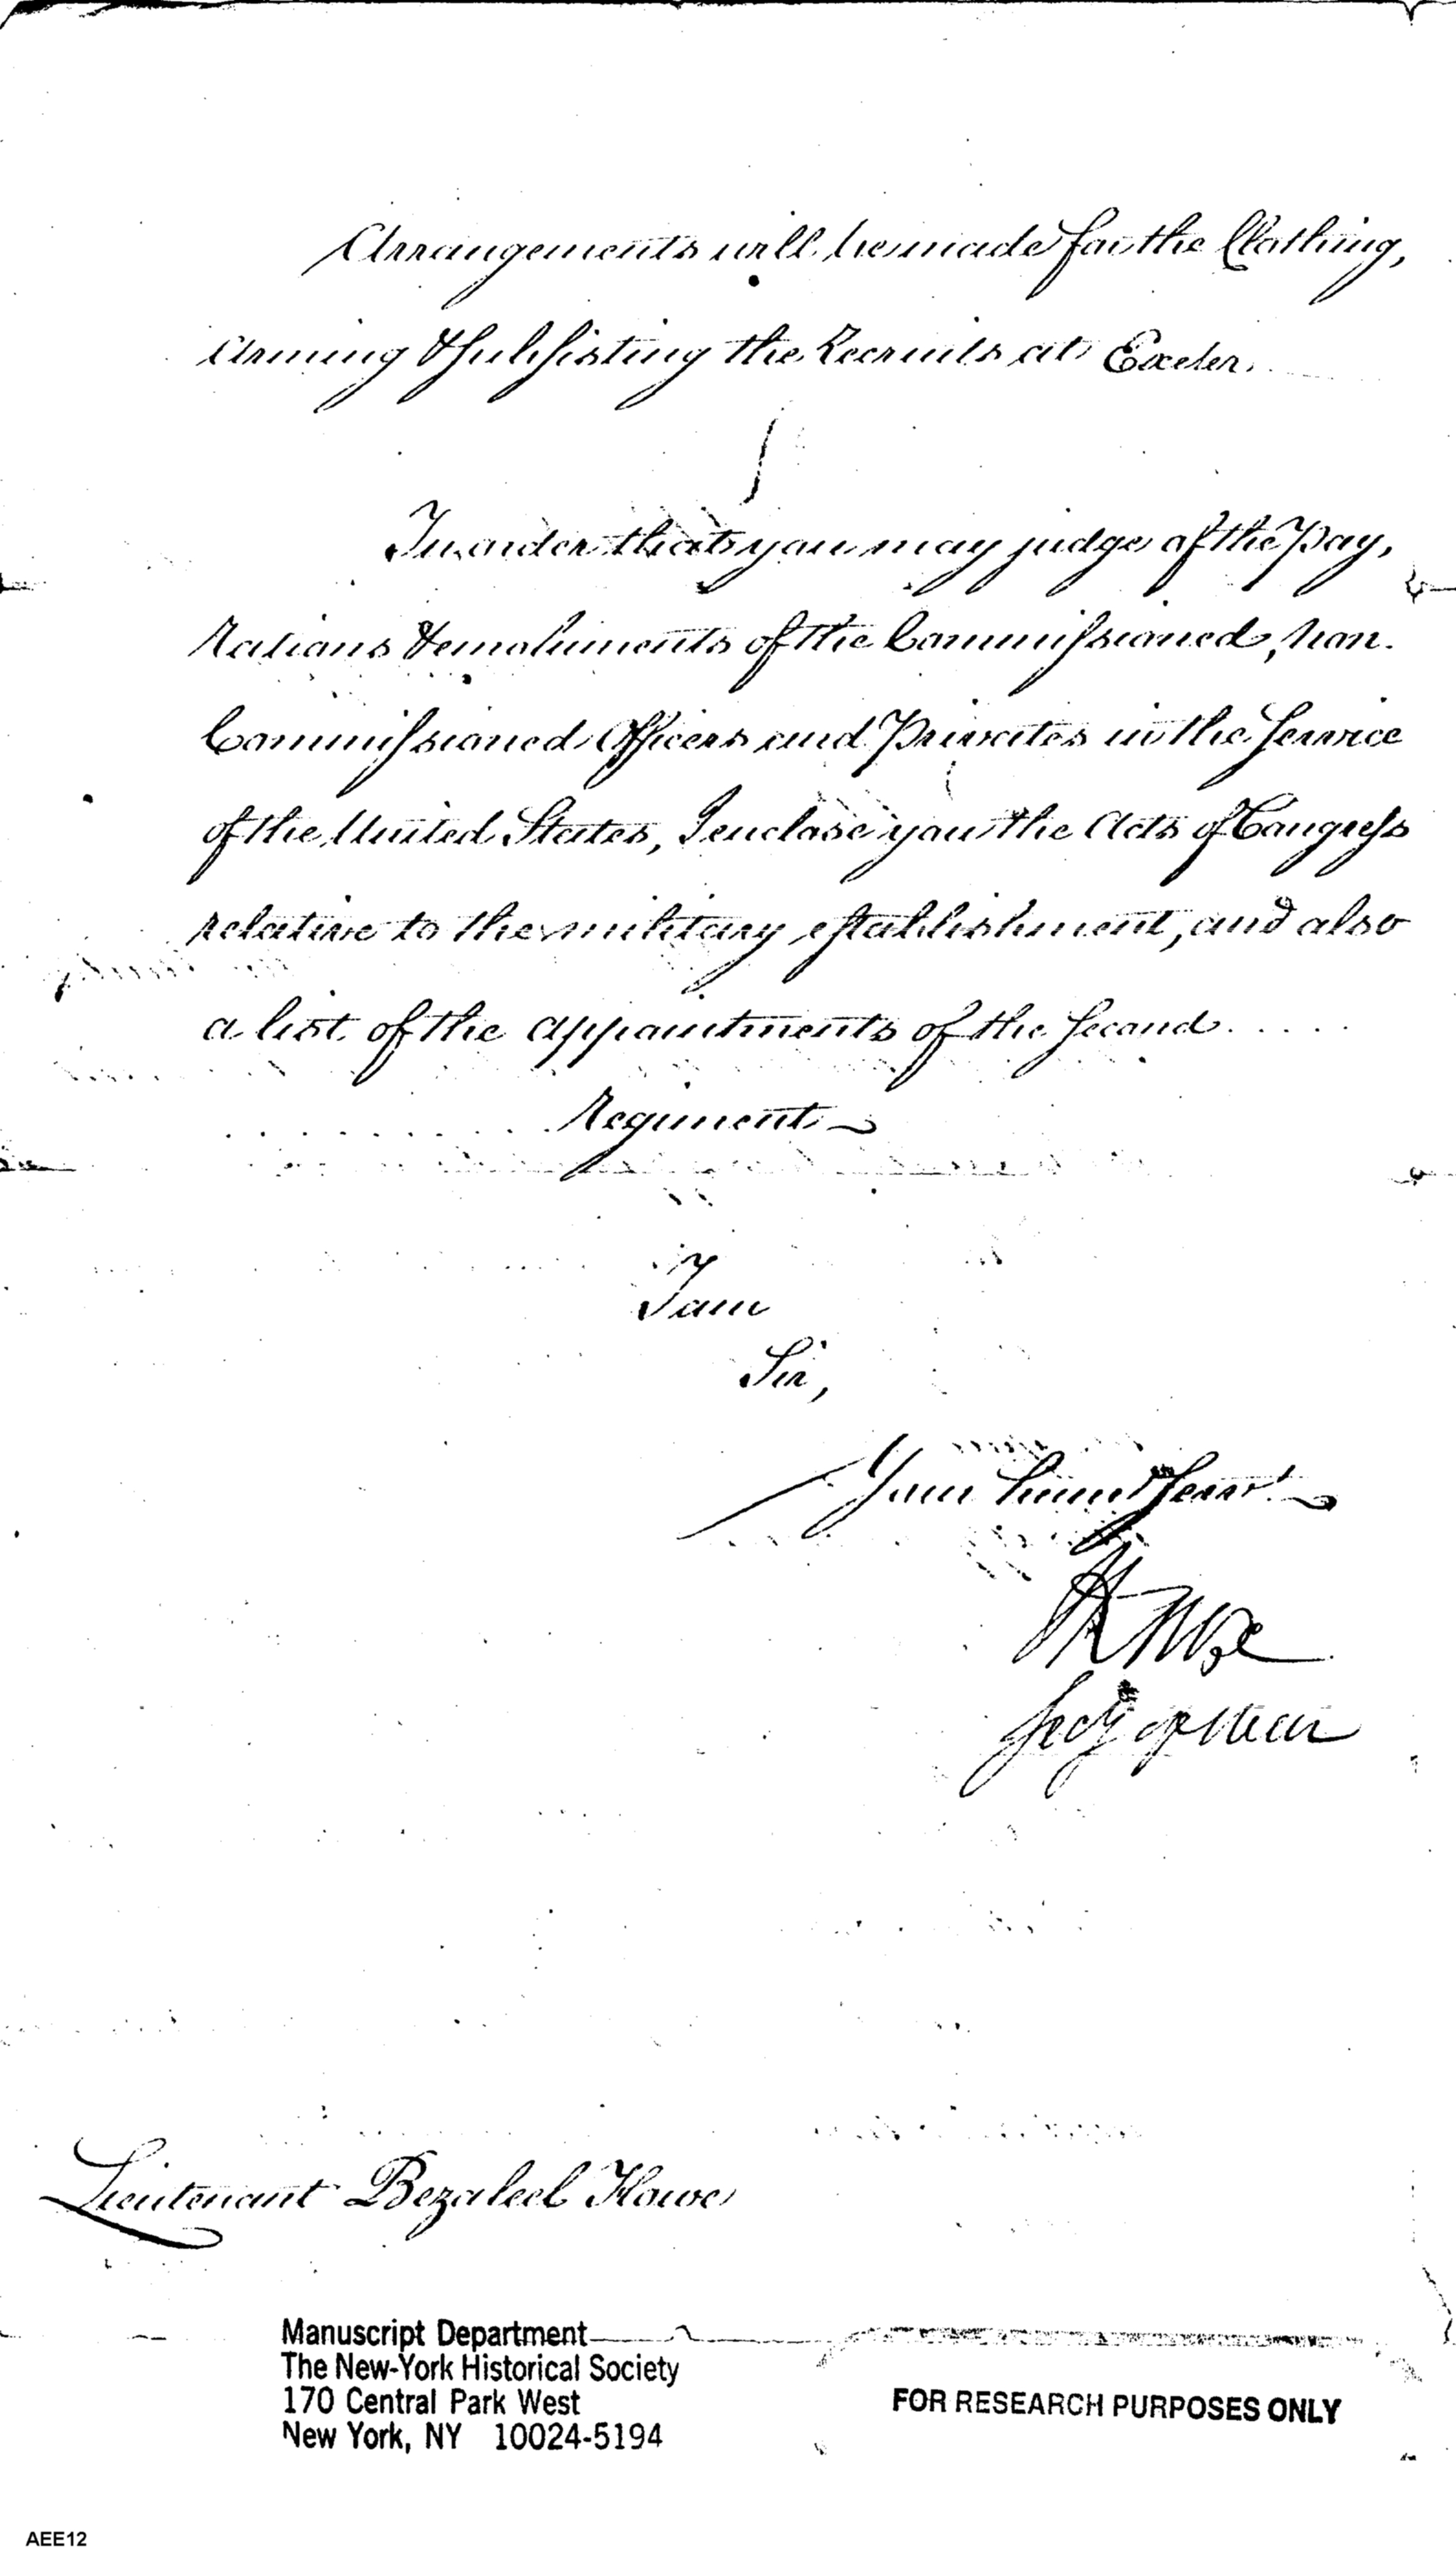 Arrangements will be made for the Clothing,
Arming & subsisting the Recruits at Exeter.
In order that you may judge of the Pay,
Rations & emoluments of the Commissioned, non-
Commissioned Officers and Privates in the Service
of the United States, I enclose you the Acts of Congress
relative to the military establishment, and also
a list of the appointments of the Second . . . . .
. . . . . . . . . Regiment
I am
Sir,
Your humble Servt.
H Knox
Secy of War
Lieutenant Bezaleel Howe
Manuscript Department
The New-York Historical Society
170 Central Park West
New York, NY 10024-5194
FOR RESEARCH PURPOSES ONLY
AEE12